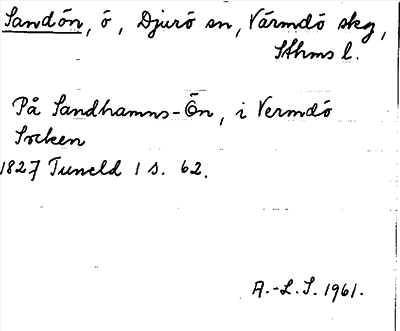 Sandön, ö, Djurö sn, Värmdö skg,
Sthms l.
På Sandhamns-Ön, i Vermdö
Socken
1827 Tuneld 1 s. 62.
A.-L.S. 1961.